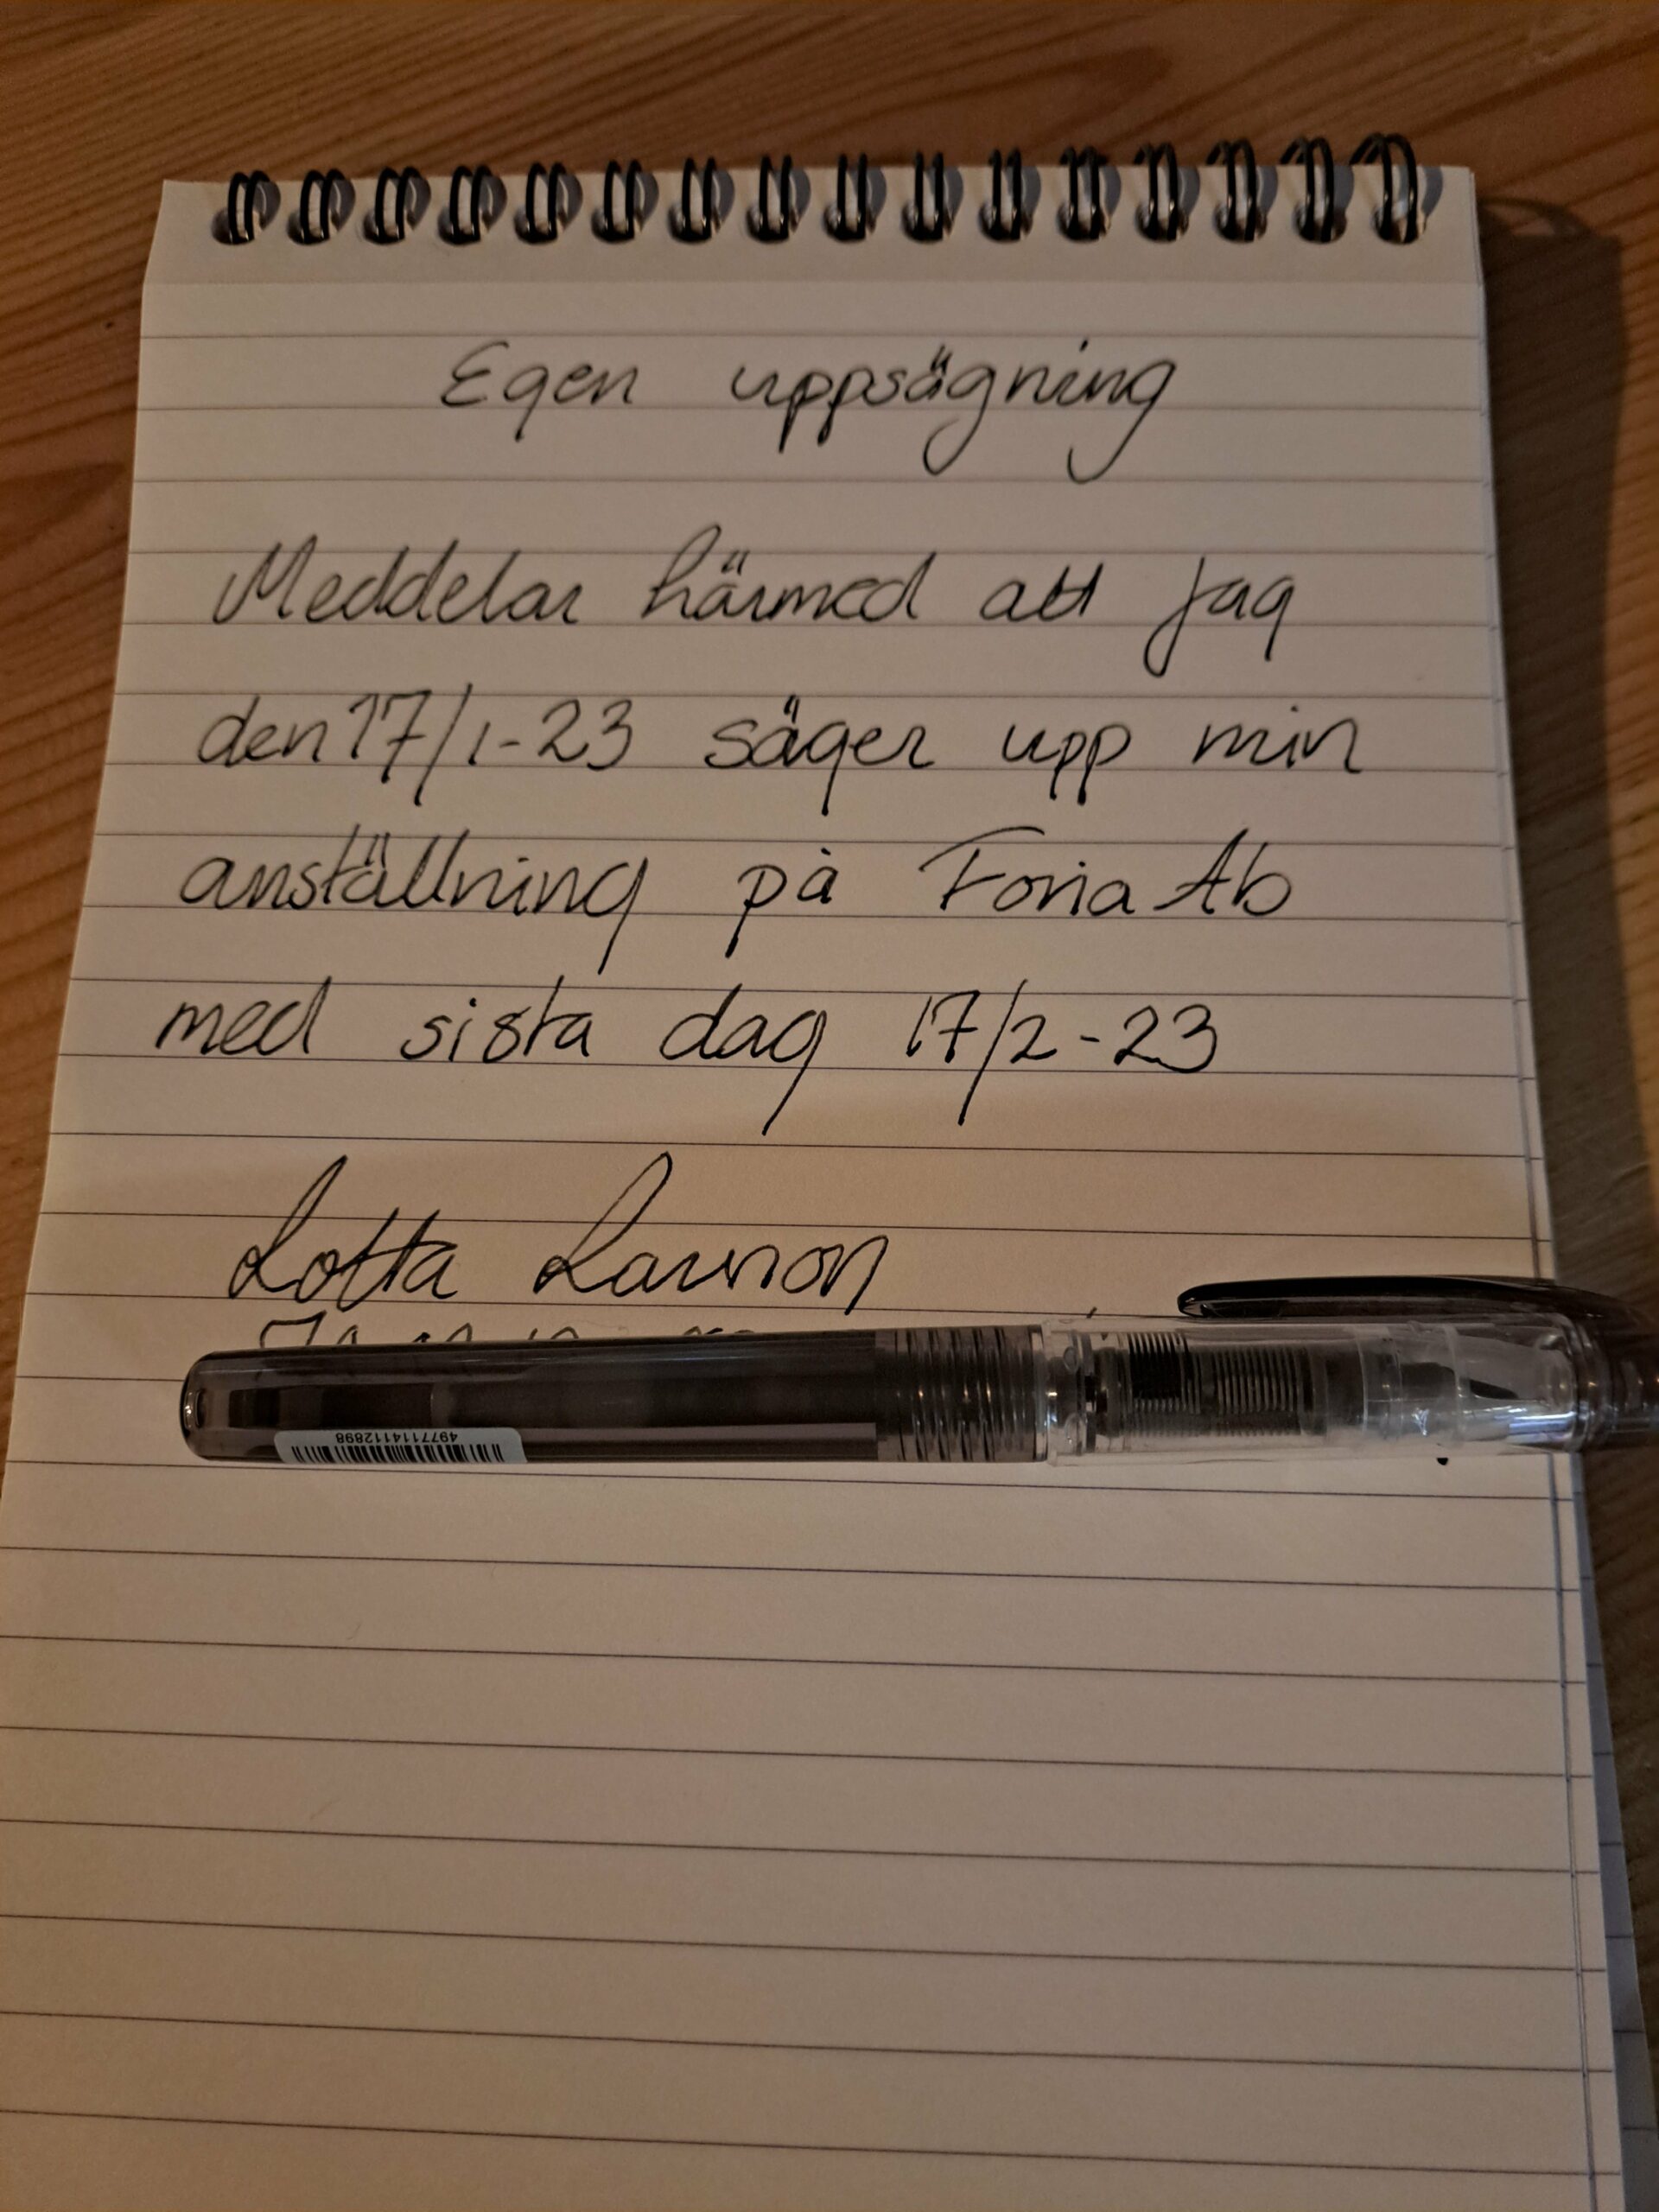 Egen uppsägning
Meddelar härmed att jag
den 17/1-23 säger upp min
anställning på Foria Ab
med sista dag 17/2-23
Lotta Larsson
4977114112898